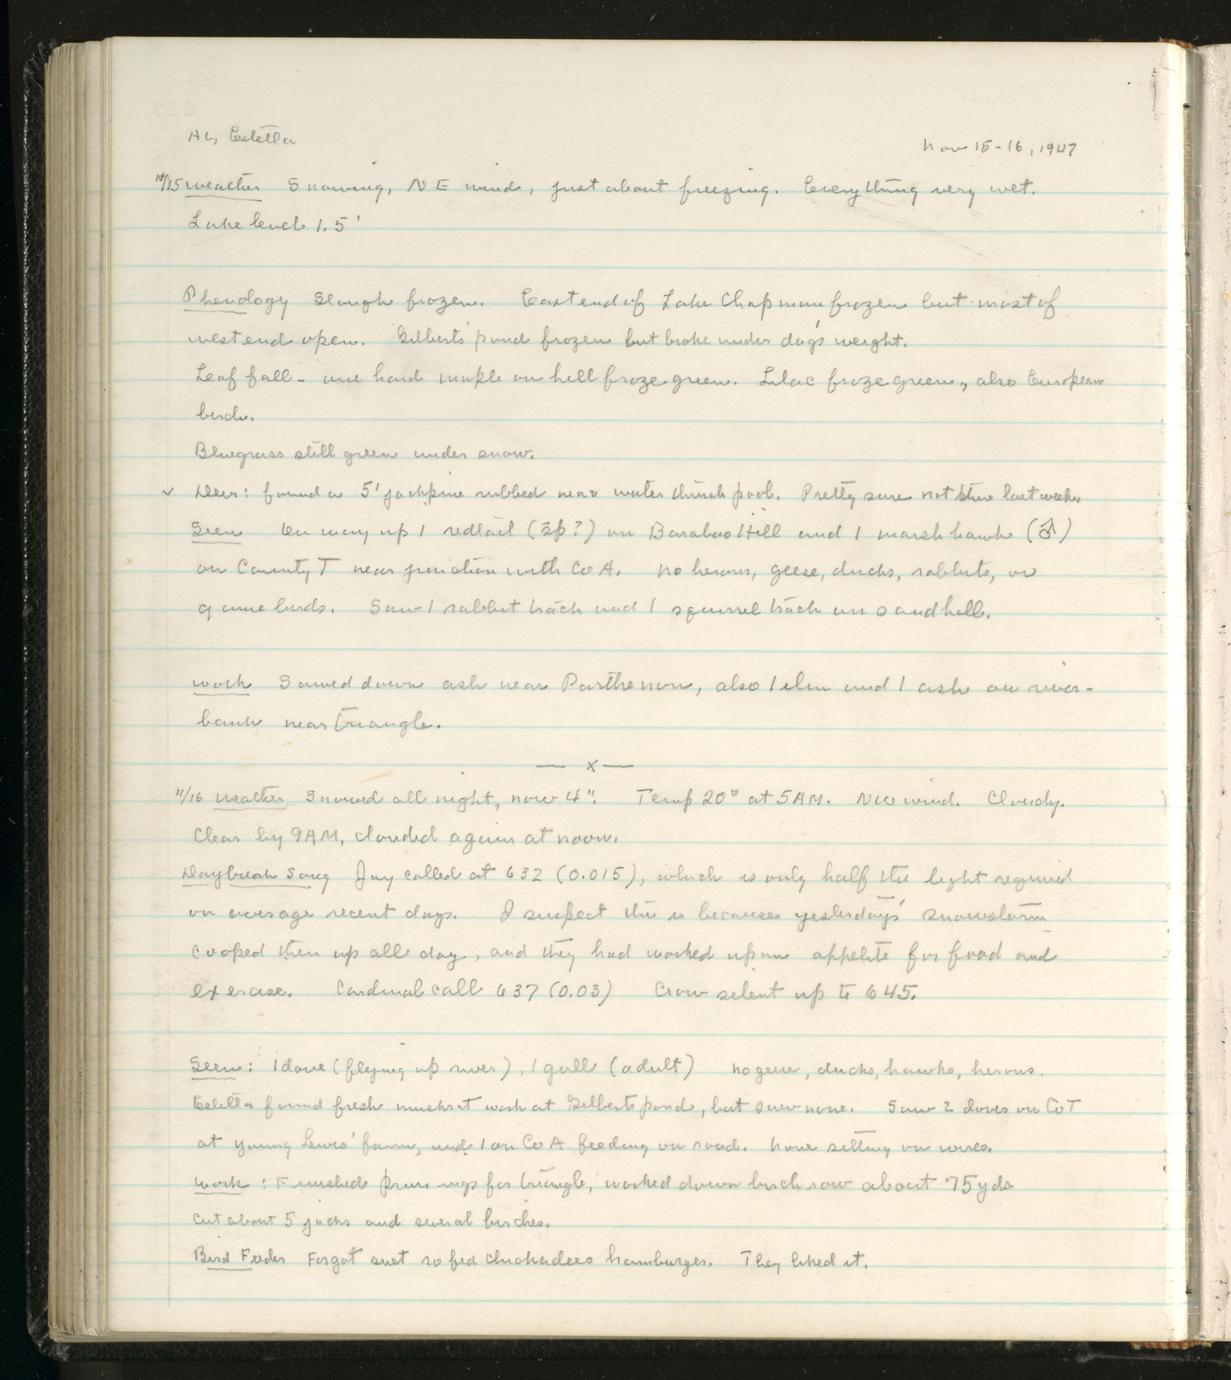 AL, Estella
Nov 15-16, 1947
11/15 Weather Snowing, NE wind, just about freezing. Everything very wet.
Lake level 1.5'
Phenology Slough frozen. East end of Lake Chapman frozen but most of
west end open. Gilberts' pond frozen but broke under dog's weight.
Leaf fall - one hard maple on hill froze green. Lilac froze green, also European
birch.
Bluegrass still green under snow.
✓ Deer: found a 5' jackpine rubbed near water thrush pool. Pretty sure not there last week.
Seen On way up 1 redtail (sp?) on Baraboo Hill and 1 marsh hawk (♂)
on County T near junction with Co A. No herons, geese, ducks, rabbits, or
game birds. Saw 1 rabbit track and 1 squirrel track on sandhill.
Work Sawed down ash near Parthenon, also 1 elm and 1 ash on river-
bank near triangle.
— x —
11/16 Weather Snowed all night, now 4". Temp 20° at 5AM. NW wind. Cloudy.
Clear by 9AM, clouded again at noon.
Daybreak Song Jay called at 632 (0.015), which is only half the light required
on average recent days. I suspect this is because yesterdays' snowstorm
cooped them up all day, and they had worked up an appetite for food and
exercise. Cardinal call 637 (0.03) Crow silent up to 645.
Seen: 1 dove (flying up river), 1 gull (adult) no geese, ducks, hawks, herons.
Estella found fresh muskrat work at Gilberts pond, but saw none. Saw 2 doves on Co T
at young Lewis' farm, and 1 on Co A feeding on road. None sitting on wires.
Work: Finished prunings for triangle, worked down birch row about 75 yds
Cut about 5 jacks and several birches.
Bird Feeder Forgot suet so fed chickadees hamburger. They liked it.